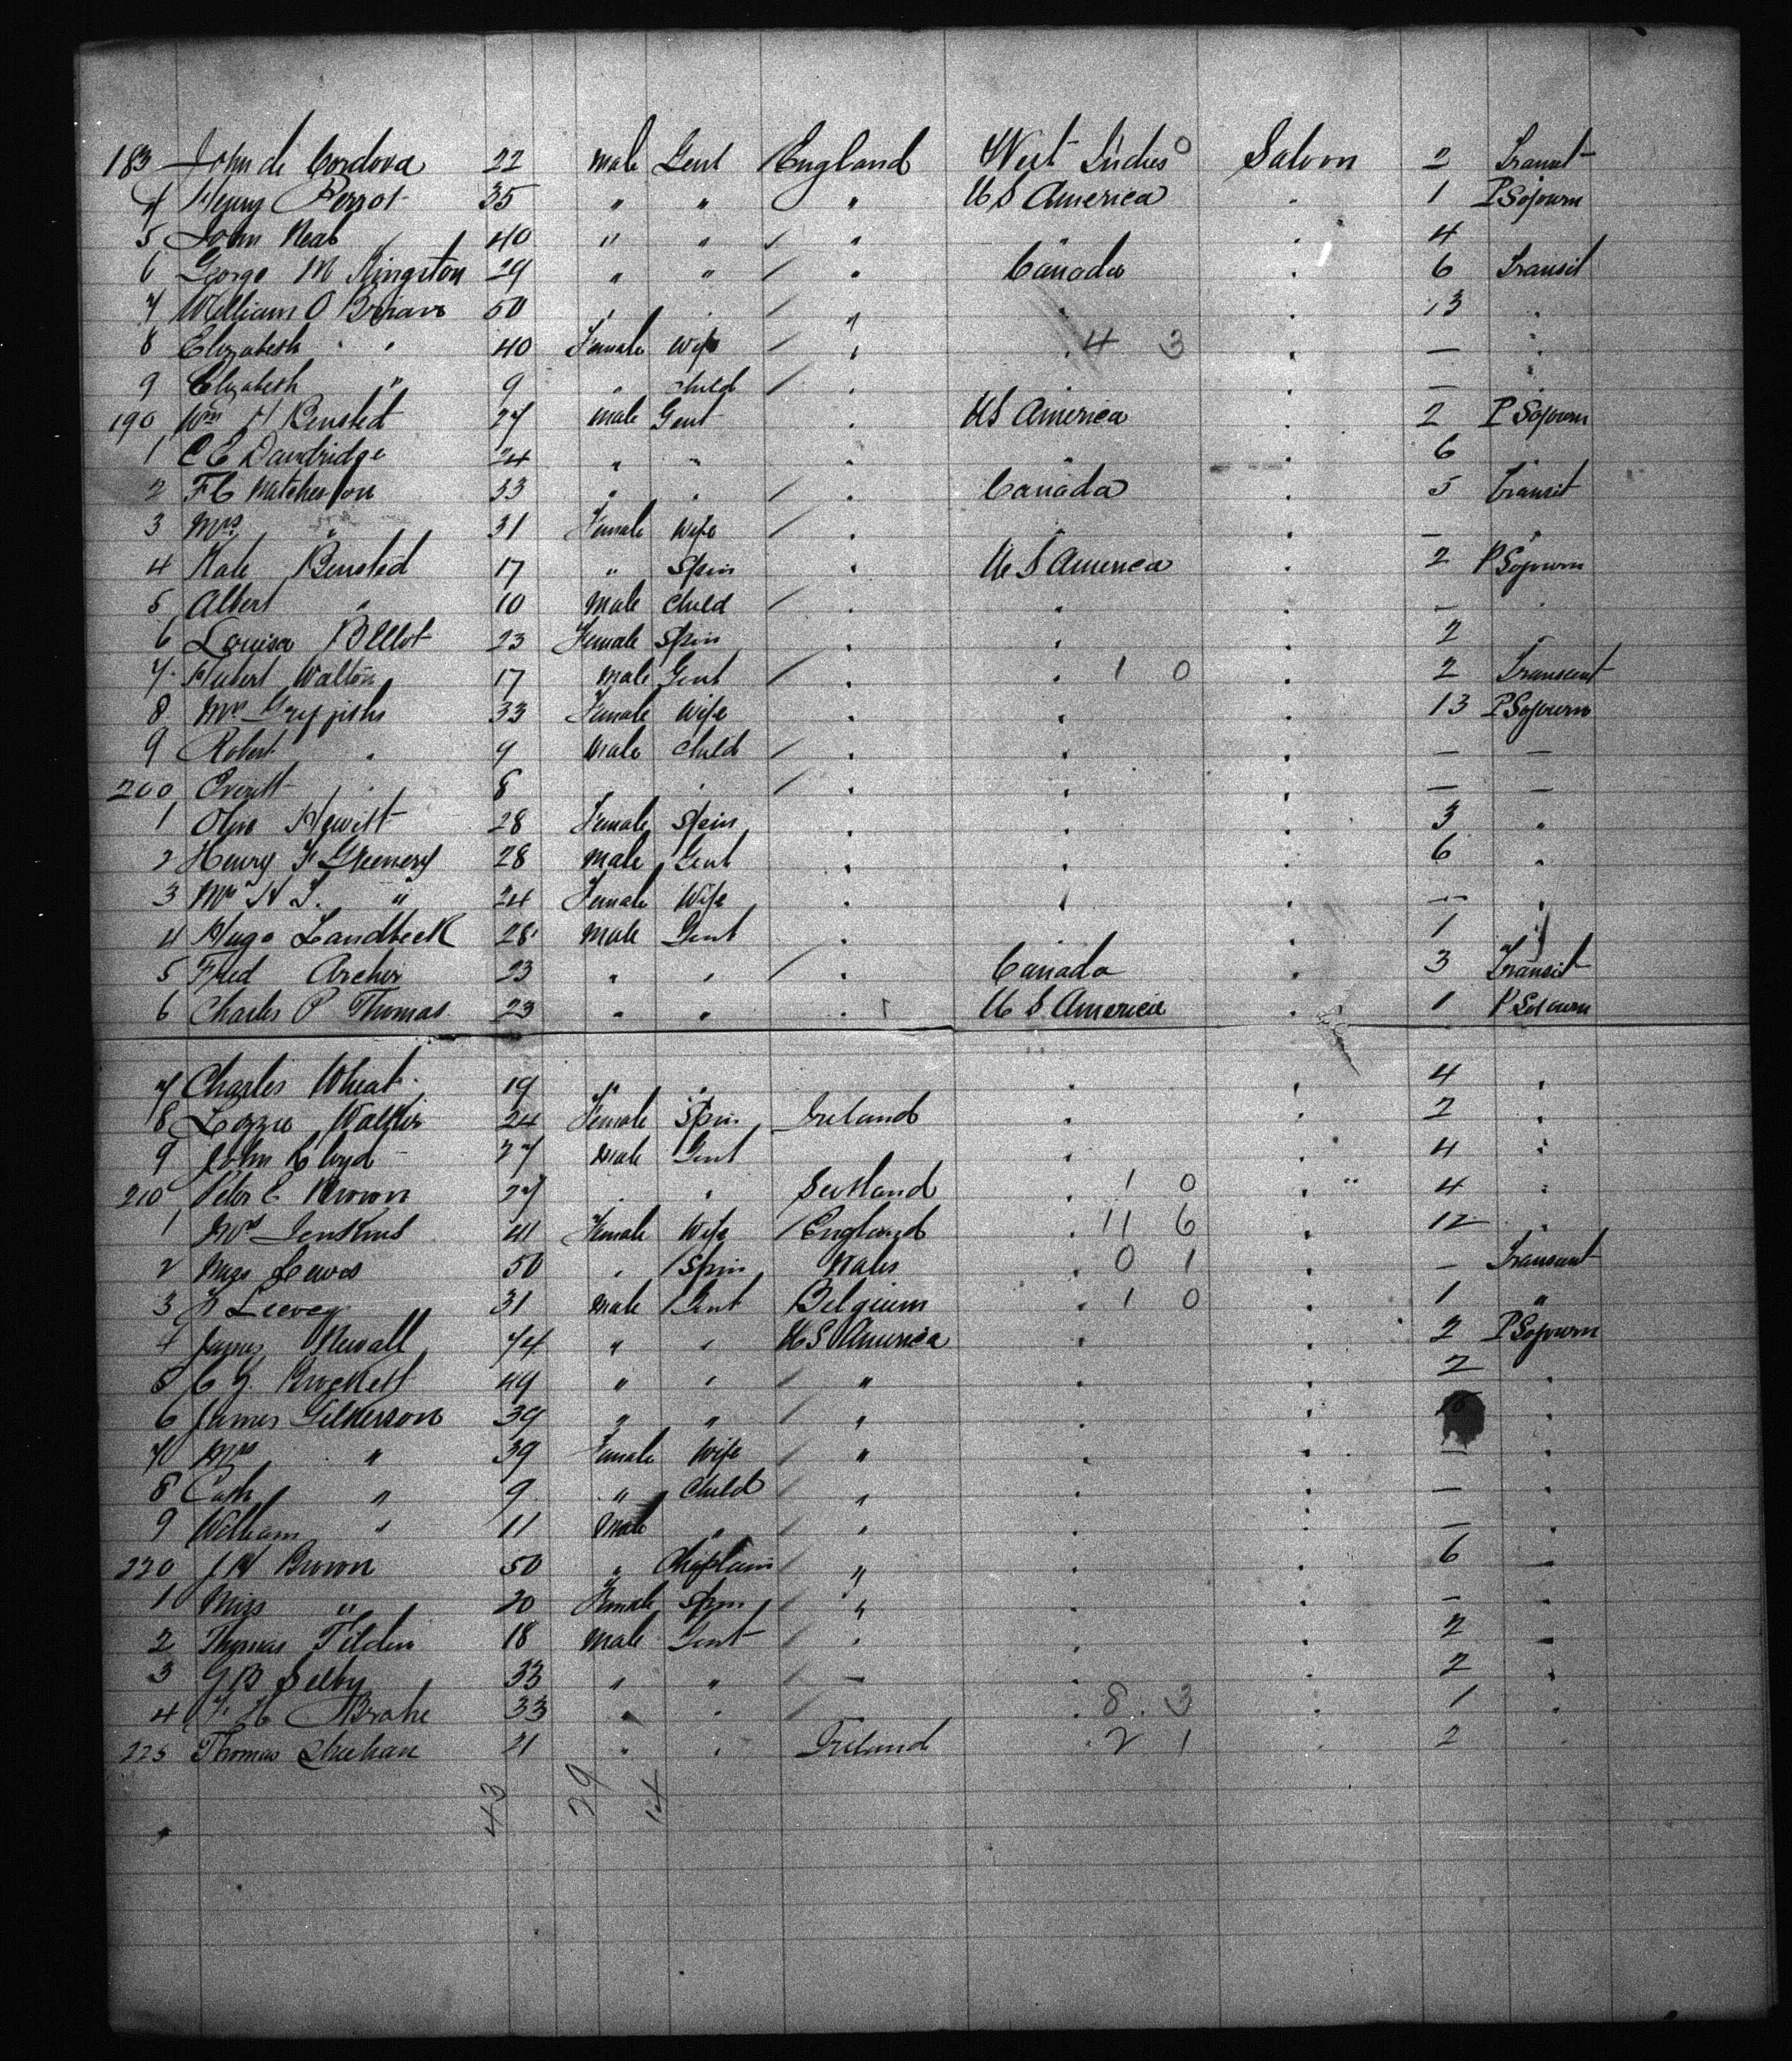 183 John de Cordova 22 Male Gent England West Indies 0 Saloon 2 Transit
4 Henry Perrot 35 " " " U S America " 1 P Sojourn
5 John Neal 40 " " " 4
6 George M Kingston 29 " " " Canada " 6 Transit
7 William O Brian 50 " " " " " 13 "
8 Elizabeth " " 40 Female Wife " " 4 3 " — "
9 Elizabeth " 9 " Child " " " — "
190 Wm H Bensted 27 Male Gent " U S America " 2 P Sojourn
1 C E Dandridge 24 " " " " " 6
2 F C 33 " " " Canada " 5 Transit
3 Mrs " 31 Female Wife " " " — "
4 Kate Bensted 17 " Spin " U S America " 2 P Sojourn
5 Albert " 10 Male Child " " " — "
6 Louisa 23 Female Spin " " " 2 "
7 Hubert Walton 17 Male Gent " " 1 0 " 2 Transient
8 Mrs Griffiths 33 Female Wife " " " 13 P Sojourn
9 Robert " 9 Male Child " " " — —
200 Everitt " 8 " " " " " — —
1 Olive Hewitt 28 Female Spin " " " 3 "
2 Henry F 28 Male Gent " " " 6 "
3 Mrs H F. " 24 Female Wife " " " — "
4 Hugo Landbeck 28 Male Gent " " " 1 "
5 Fred Archer 23 " " " Canada " 3 Transit
6 Charles P Thomas 23 " " " U S America " 1 P Sojourn
7 Charles Wheat 19 " " " " 4 "
8 Lizzie Walker 24 Female Spin Ireland " " 2 "
9 John Lloyd 27 Male Gent " " 4 "
210 Peter E Brown 27 " " Scotland " 1 0 " 4 "
1 Mrs Jenkins 41 Female Wife England " 11 6 " 12 "
2 Miss Lewis 50 " Spin Wales " 0 1 " — Transient
3 31 Male Gent Belgium " 1 0 " 1 "
4 James Newall 44 " " U S America " " 2 P Sojourn
5 C G. Brockett 49 " " " " " 2 "
6 James Gilkerson 39 " " " " " "
7 Mrs " 39 Female Wife " " " — "
8 " 9 " Child " " " — "
9 William " 11 Male " " " " — "
220 J H Brown 50 " Chaplain " " " 6 —
1 Miss " 20 Female Spin " " " — "
2 Thomas Tilden 18 Male Gent " " " 2 —
3 G B Selby 33 " " — " " 2 "
4 F. H 33 " " " 8 3 " 1 "
225 Thomas Sheehan 21 " " Ireland " 2 1 " 2 "
43 29 14